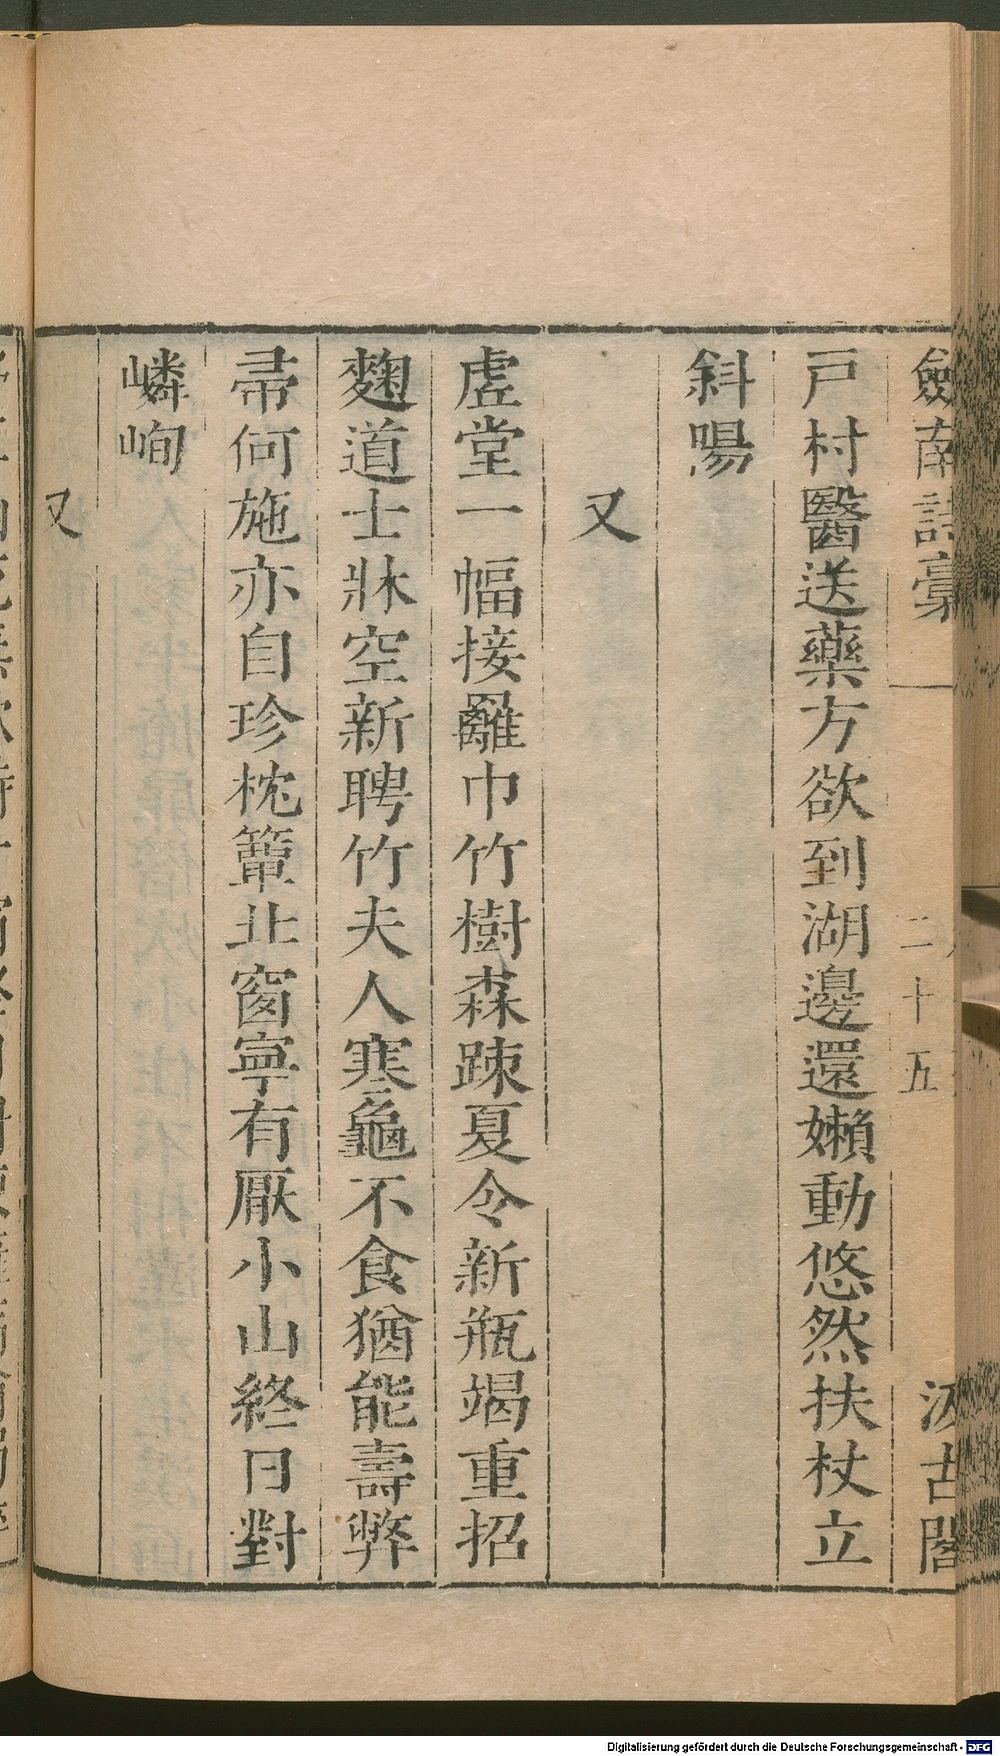 劍南詩稾
二十五
汲古閣
戸村醫送藥方欲到湖邊還嬾動悠然扶杖立
斜陽
又
虛堂一幅接䍦巾竹樹森踈夏令新瓶竭重招
麴道士牀空新聘竹夫人寒龜不食猶能壽弊
帚何施亦自珍枕簟北窗寧有厭小山終日對
嶙峋
又
Digitalisierung gefördert durch die Deutsche Forschungsgemeinschaft - DFG